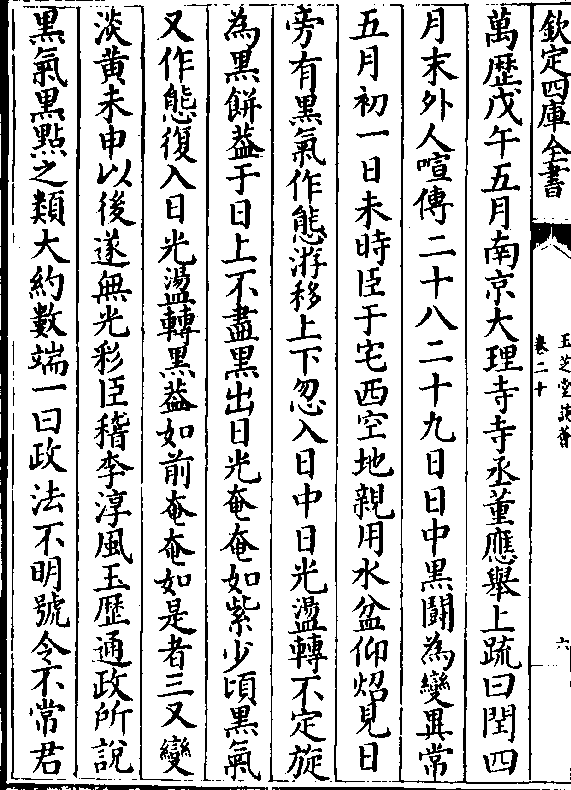 欽定四庫全書
玉芝堂談薈
卷二十
六
萬歴戊午五月南京大理寺寺丞董應舉上疏曰閏四
月末外人喧傳二十八二十九日日中黒鬭為變異常
五月初一日未時臣于宅西空地親用水盆仰炤見日
旁有黒氣作態游移上下忽入日中日光盪轉不定旋
為黒餅葢于日上不盡黒出日光奄奄如紫少頃黒氣
又作態復入日光盪轉黒葢如前奄奄如是者三又變
淡黄未申以後遂無光彩臣稽李淳風玉歴通政所說
黒氣黒點之類大約數端一曰政法不明號令不常君